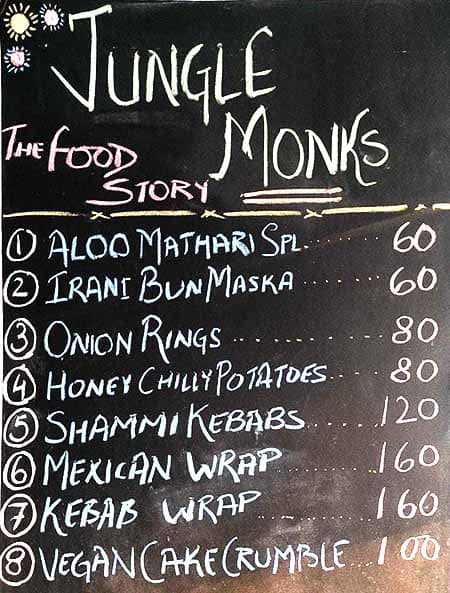 JUNGLE
MONKS
THE FOOD
STORY
1 ALOO MATHARI SPL....... 60
2 IRANI BUN MASKA ....... 60
3 ONION RINGS ........... 80
4 HONEY CHILLY POTATOES .... 80
5 SHAMMI KEBABS ....... 120
6 MEXICAN WRAP ....... 160
7 KEBAB WRAP ....... 160
8 VEGAN CAKE CRUMBLE ... 100